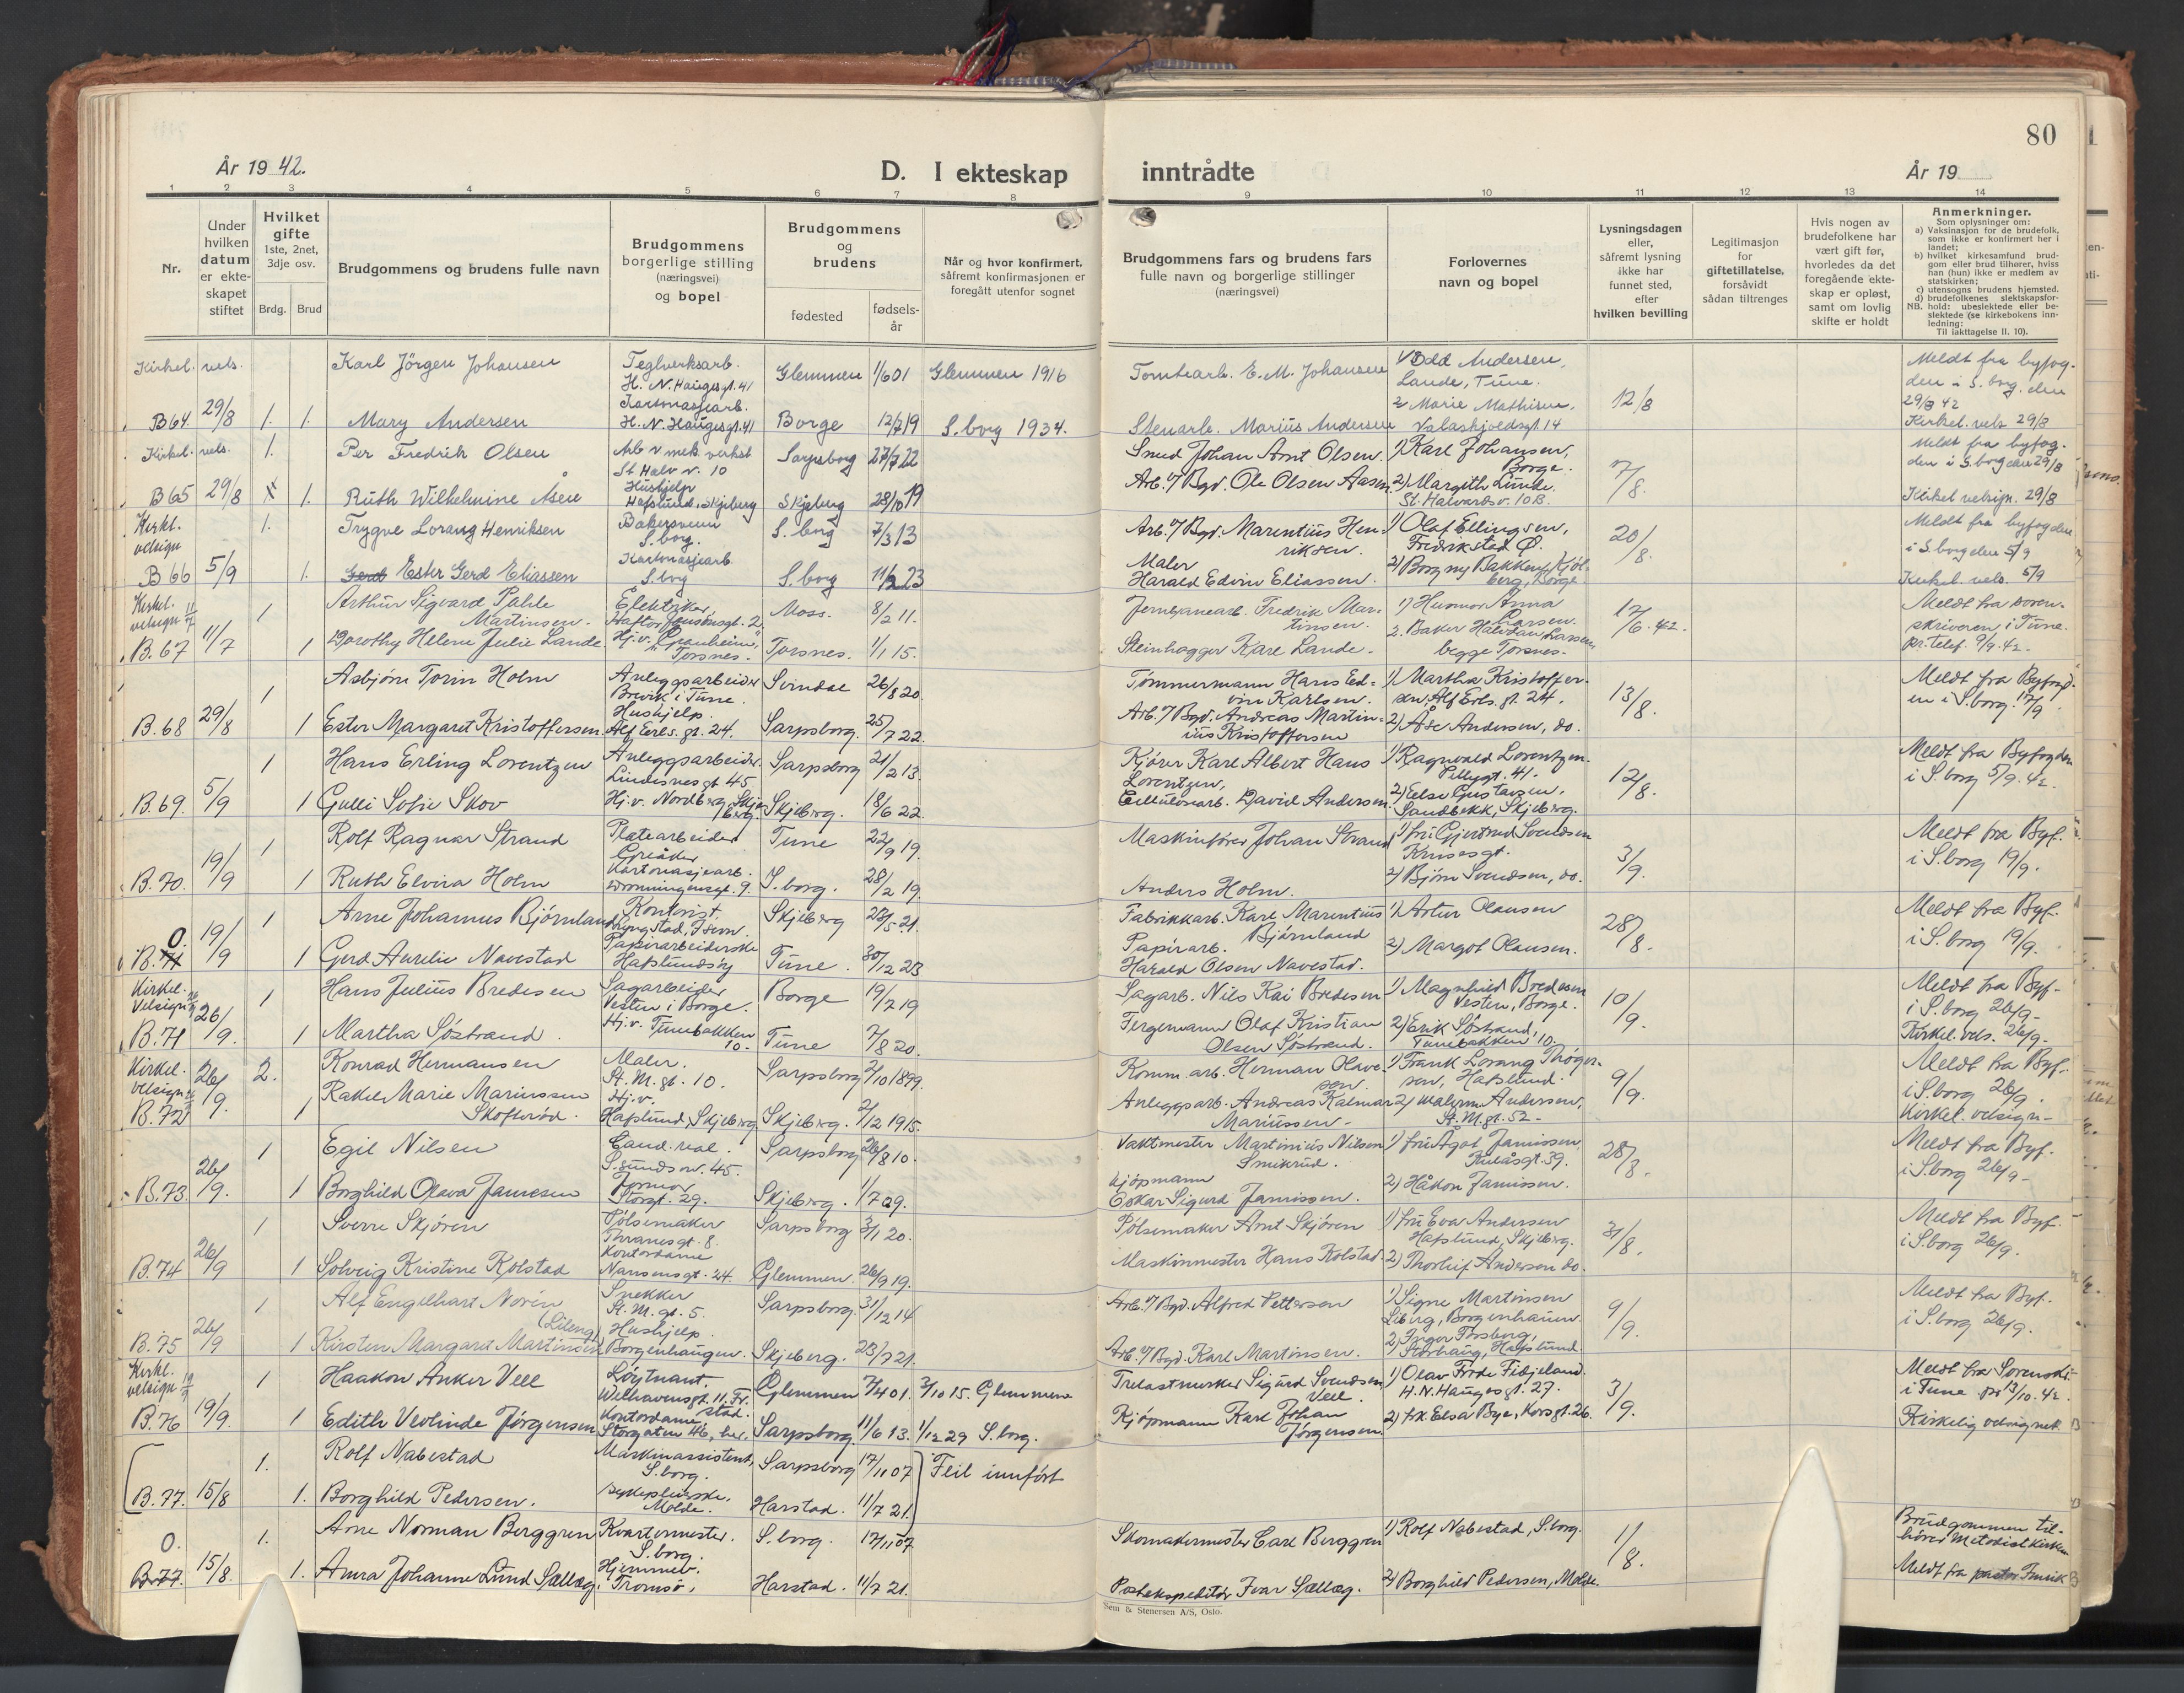 80
År 1942.
D. I ekteskap inntrådte
År 19
1 2 3 4 5 6 7 8 9 10 11 12 13 14
Nr.
Under hvilken datum er ekteskapet stiftet
Hvilket gifte
1ste, 2net, 3dje osv.
Brdg. Brud
Brudgommens og brudens fulle navn
Brudgommens borgerlige stilling (næringsvei) og bopel
Brudgommens og brudens
fødested
fødselsår
Når og hvor konfirmert, såfremt konfirmasjonen er foregått utenfor sognet
Brudgommens fars og brudens fars fulle navn og borgerlige stillinger (næringsvei)
Forlovernes navn og bopel
Lysningsdagen eller, såfremt lysning ikke har funnet sted, efter hvilken bevilling
Legitimasjon for giftetillatelse, forsåvidt sådan tiltrenges
Hvis nogen av brudefolkene har vært gift før, hvorledes da det foregående ekteskap er opløst, samt om lovlig skifte er holdt
Anmerkninger.
Som oplysninger om:
a) Vaksinasjon for de brudefolk, som ikke er konfirmert her i landet;
b) hvilket kirkesamfund brudgom eller brud tilhører, hviss han (hun) ikke er medlem av statskirken;
c) utensogns brudens hjemsted.
d) brudefolkenes slektskapsforhold: ubeslektede eller beslektede (se kirkebokens innledning:
NB.
Til iakttagelse II. 10).
Kirkel. vels. Karl Jörgen Johansen Teglverksarb. H. N. Hauges gt. 41 Glemmen 1/6 01 Glemmen 1916 Tomtearb. E. M. Johansen 1) Odd Andersen, Lande, Tune. Meldt fra byfogden i S.borg den 29/8 42
B 64. 29/8 1. 1. Mary Andersen Kartonasjearb. H. N. Hauges gt. 41 Borge 12/7 19 S.borg 1934. Stenarb. Marius Andersen 2 Marie Mathisen, Valaskjoldsgt 14 12/8 Kirkel. vels 29/8
Kirkel. vels. 1. Per Fredrik Olsen Arb v mek. verkst St Halv v. 10 Sarpsborg 27/7 22 Smed Johan Arnt Olsen. 1) Karl Johansen, Borge. Meldt fra byfogden i S.borg den 29/8
B 65 29/8 1. Ruth Wilhelmine Åsen Hushjelp Hafslund, Skjeberg Skjeberg 28/10 19 Arb. v/ Bgd. Ole Olsen Aasen 2) Margith Linde. St. Halvards v. 10 B. 7/8. Kirkel velsign. 29/8
Kirkl. velsign 1. Trygve Lorang Henriksen Bakersvenn S.borg. S. borg 7/3 13 Arb. v/ Bgd. Marentius Henriksen. 1) Olaf Ellingsen, Fredrikstad Ø. 20/8. Meldt fra byfogden i S.borg den 5/9
B 66 5/9 1. Ester Gerd Eliassen Kartonasjearb S.borg S.borg 11/2 23 Maler Harald Edvin Eliassen. 2) Borgny Bakken, Kjölberg, Borge Kirkel. vels. 5/9
Kirkel. velsign 11/7 1 Arthur Sigvard Pahle Martinsen. Elektriker, Moss. 8/2 11. Jernbanearb. Fredrik Martinsen. 1) Husmor Anna Larsen. 17/6. 42. Meldt fra sorenskriveren i Tune. pr. telef. 9/9. 42.
B. 67 11/7 1 Dorothy Helene Julie Lande. Hj.v. "Granheim", Torsnes. Torsnes. 1/1 15. Steinhogger Karl Lande. 2. Baker Halvdan Larsen begge Torsnes.
1 Asbjörn Torin Holm Anleggsarbeider Brevik i Tune. Svindal 26/8 20. Tömmermann Hans Edvin Karlsen. 1) Martha Kristoffersen, Alf Erls. gt. 24. 13/8. Meldt fra Byfogden i S.borg. 17/9
B. 68 29/8 1 Ester Margaret Kristoffersen. Hushjelp. Alf Erls. gt. 24. Sarpsborg. 25/7 22. Arb. v/ Bgd. Andreas Martinius Kristoffersen 2) Åse Andersen, do.
1 Hans Erling Lorentzen Anleggsarbeider. Lindesnes gt 45 Sarpsborg 21/2 13. Kjörer Karl Albert Hans Lorentzen, 1) Ragnvald Lorentzen. Pellygt. 41. 12/8. Meldt fra Byfogden i S.borg 5/9. 42.
B. 69. 5/9 1 Gulli Sofie Skov Hj.v. Nordberg Skjeberg. Skjeberg. 18/6 22. Cellulosearb. David Andersen. 2) Else Gustavsen, Sandbekk, Skjeberg.
1 Rolf Ragnar Strand Platearbeider Greåker Tune 22/9 19. Maskinförer Johan Strand 1) fru Gjertrud Svendsen Krusesgt. 3/9. Meldt fra Byf. i S.borg 19/9.
B. 70. 19/9 1 Ruth Elvira Holm Kartonasjearb. Dronningensgt. 9. S.borg. 28/2 19. Anders Holm. 2) Bjørn Svendsen, do.
1 Arne Johannes Bjørnland Kontorist. Skjeberg 23/5 21. Fabrikkarb. Karl Marentius Bjørnland 1) Artur Olausen 28/8. Meldt fra Byf. i S.borg 19/9.
0. B. 71 19/9 1 Gerd Aurelie Navestad Papirarbeiderske Hafslundsøy Tune. 30/12 23 Papirarb. Harald Olsen Navestad. 2) Margot Olausen.
Kirkel. Velsign 26/9 1 Hans Julius Bredesen Sagarbeider Vesten i Borge. Borge 19/7 19 Sagarb. Nils Kai Bredesen 1) Magnhild Bredesen Vesten, Borge. 10/9. Meldt fra Byf. i S.borg 26/9.
B. 71 26/9. 1 Martha Söstrand Hj.v. Tunebakken 10. Tune 7/8 20. Fergemann Olaf Kristian Olsen Söstrand. 2) Erik Söstrand, Tunebakken 10. Kirkel. vels. 26/9.
Kirkel. velsign 26/9 2. Konrad Hermansen Maler. St. M. gt. 10. Sarpsborg 2/10 1899. Komm. arb. Herman Olavesen. 1) Frank Lorang Thøgersen, Hafslund. 9/9. Meldt fra Byf. i S.borg 26/9.
B. 72 26/9. 1 Rakel Marie Mariussen Skofterød. Hj.v. Hafslund, Skjeberg Skjeberg. 2/12 1915. Anleggsarb. Andreas Kalmar Mariussen. Andersen, St. M. gt. 52. Kirkel. velsign.
1 Egil Nilsen Cand. real. S.sundsv. 45. Sarpsborg 26/8 10. Vaktmester Martinius Nilsen Smikrud. 1) fru Ågot Jamissen Kulåsgt. 39. 28/8. Meldt fra Byf. i S.borg 26/9.
B. 73. 26/9. 1 Borghild Olava Jamesen Storgt. 29. Skjeberg. Kjøpmann Oskar Sigurd Jamissen. 2) Håkon Jamissen.
1 Sverre Skjören Pølsemaker Thranes gt. 8. Sarpsborg 3/1 20. Pølsemaker Arnt Skjören 1) fru Eva Andersen Hafslund, Skjeberg. 31/8. Meldt fra Byf. i S.borg 26/9.
B. 74 26/9 1 Solveig Kristine Kolstad Kontordame Nansensgt. 24. Glemmen. 26/9 19. Maskinmester Hans Kolstad. 2) Thorleif Andersen do.
1 Alf Engelhart Norén (Lileng) Snekker St. M. gt. 5. Sarpsborg. 31/12 14 Arb. v/ Bgd. Alfred Pettersen 1) Signe Martinsen Liberg, Borgenhaugen. 9/9. Meldt fra Byf. i S.borg 26/9.
B. 75 26/9 1 Kirsten Margaret Martinsen Hushjelp. Borgenhaugen. Skjeberg. 23/7 21. Arb. v/ Bgd. Karl Martinsen. 2) Inger Torsberg, Storhaug, Hafslund.
Kirkl. velsign 19/9 1 Haakon Anker Vell Løytnant. Welhavensgt. 11. Fr.stad. Glemmen 7/4 01. 3/10 15. Glemmen Trelastmerker Sigurd Svendsen Vell. 1) Olav Frode Fidjeland. H. N. Hauges gt. 27. 3/9. Meldt fra Sorenskr. i Tune pr 13/10. 42.
B. 76 19/9. 1 Edith Verlinde Jørgensen Kontordame, Storgaten 46, her. Sarpsborg. 11/6 13. 1/12 29 S.borg. Kjøpmann Karl Johan Jørgensen. 2) frk. Elsa Bye, Korsgt. 26. Kirkelig velsignet.
1. Rolf Nabestad Maskinassistent, S.borg. Sarpsborg 17/11 07 Feil innført
B. 77. 15/8 1. Borghild Pedersen. Sykepleierske. Molde. Harstad. 11/7 21.
0. 1. Arne Norman Berggren Kvartermester. S.borg. S.borg. 17/11 07. Skomakermester Carl Berggren 1) Rolf Nabestad, S.borg. 1/8. Brudgommen tilhører Metodistkirken
B. 77. 15/8. 1. Anna Johanne Lund Sellæg. Hjemmev. Tromsø, Harstad. 11/7 21. Postekspeditör Ivar Sellæg. 2) Borghild Pedersen, Molde. Meldt fra pastor
Sem & Stenersen A/S, Oslo.